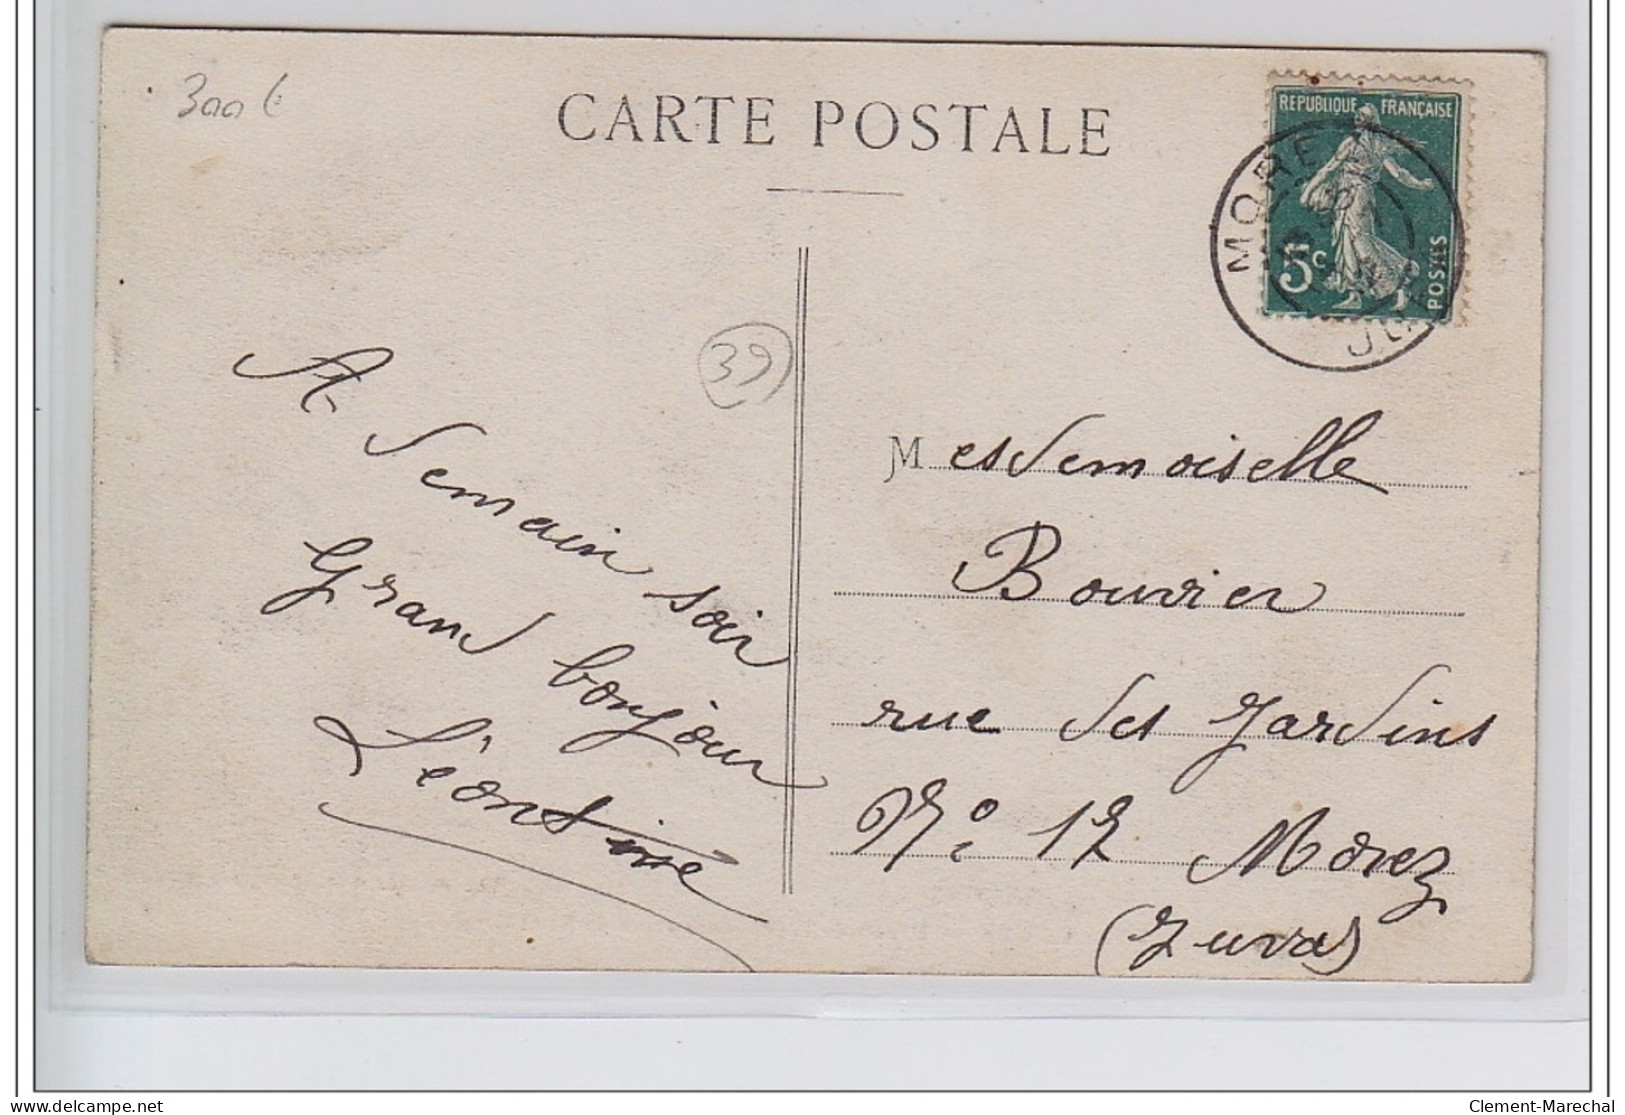 300 €
CARTE POSTALE
REPUBLIQUE FRANÇAISE
5c
POSTES
MOREZ
JURA
39
A demain soir
Grand bonjour
Léontine
Mesdemoiselle
Bouvier
rue des Jardins
No 17 Morez
(Jura)
delcampe.net
Clement-Marechal